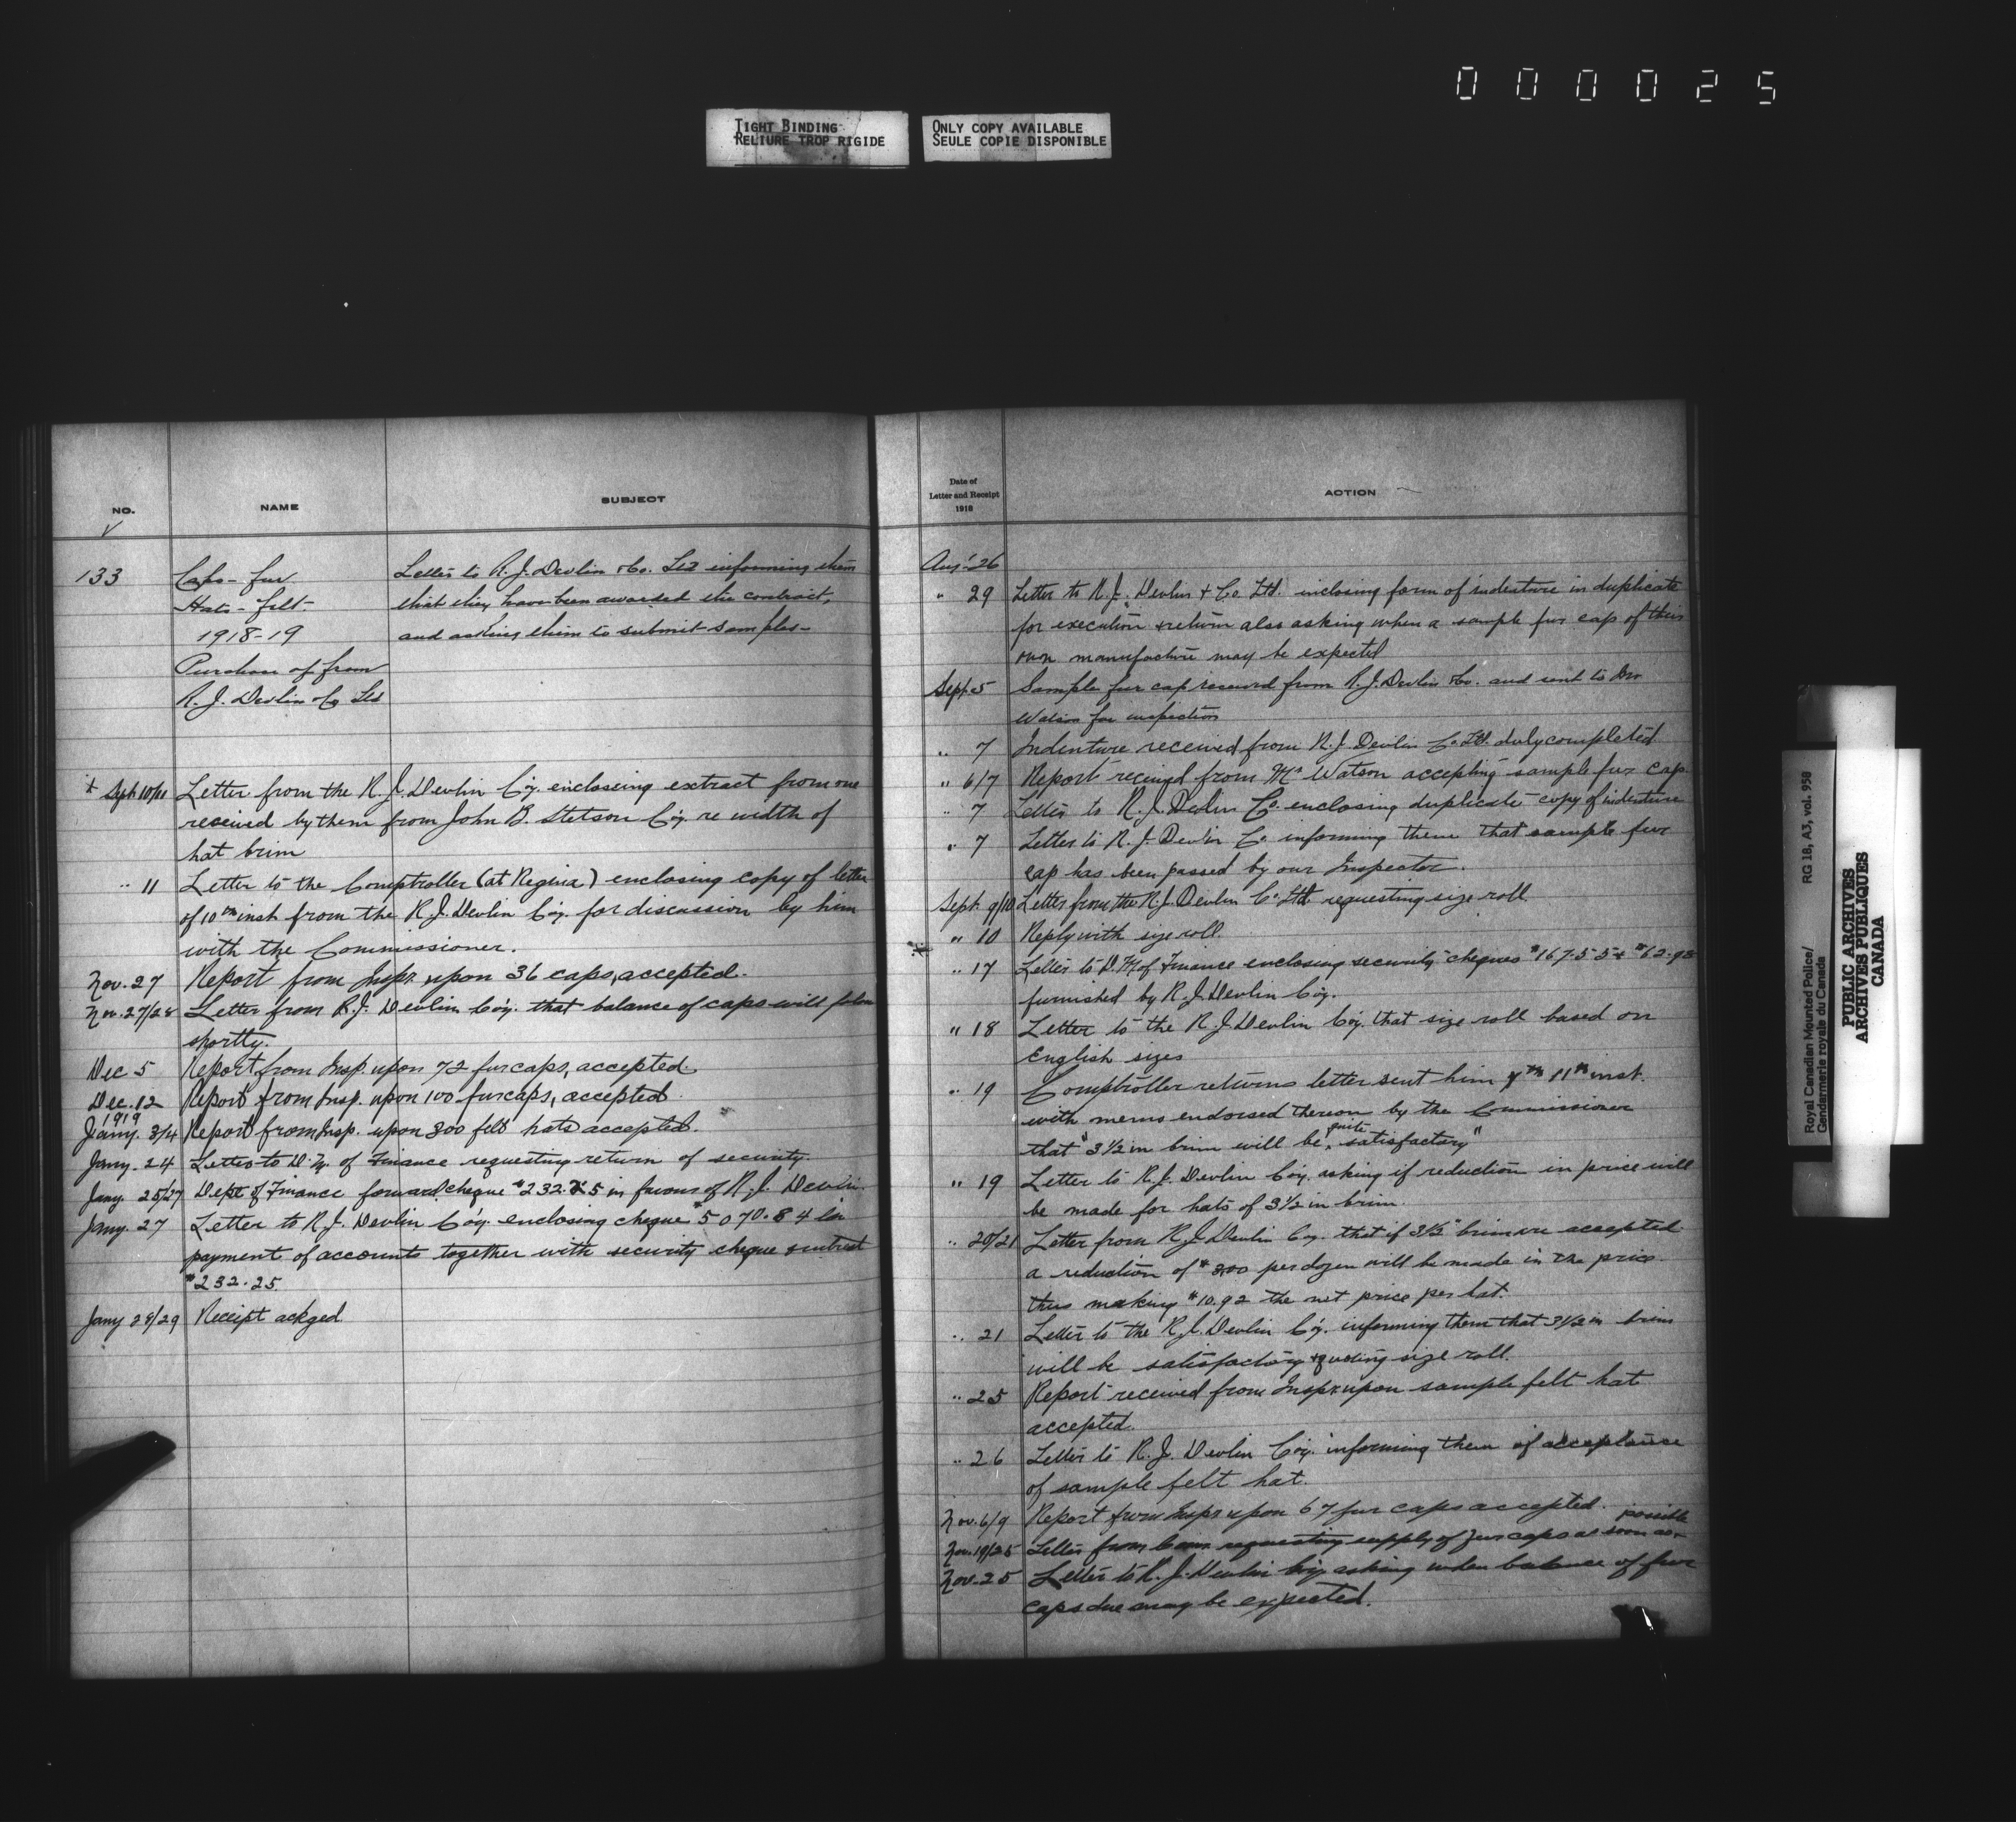 000025
TIGHT BINDING
RELIURE TROP RIGIDE
ONLY COPY AVAILABLE
SEULE COPIE DISPONIBLE
NO.
NAME
SUBJECT
133
Caps - fur
Hats - felt -
1918-19
Purchase of from
R. J. Devlin & Co Ltd
Letter to R. J. Devlin & Co. Ltd informing them
that they have been awarded the contract,
and asking them to submit samples -
+ Sept 10/11 Letter from the R. J. Devlin Coy. encloseing extract from one
received by them from John B. Stetson Coy. re width of
hat brim
" 11 Letter to the Comptroller (at Regina) enclosing copy of letter
of 10th inst from the R. J. Devlin Coy. for discussion by him
with the Commissioner.
Nov. 27 Report from Inspr upon 36 caps, accepted.
Nov. 27/28 Letter from R. J. Devlin Coy. that balance of caps will follow
shortly.
Dec 5 Report from Insp. upon 72 fur caps, accepted
Dec. 12 Report from Insp. upon 100 fur caps, accepted
1919
Jany. 3/4 Report from Insp. upon 300 felt hats accepted.
Jany. 24 Letter to D. M. of Finance requesting return of security.
Jany. 25/27 Dept of Finance forward cheque $232.25 in favour of R. J. Devlin.
Jany. 27 Letter to R. J. Devlin Coy. enclosing cheque $5070.84 in
payment of accounts together with security cheque
$232.25.
Jany 28/29 Receipt ackged
Date of
Letter and Receipt
1918
ACTION
Aug. 26
" 29 Letter to R. J. Devlin & Co. Ltd. inclosing form of indenture in duplicate
for execution & return also asking when a sample fur cap of their
own manufacture may be expected
Sept. 5 Sample fur cap received from R. J. Devlin & Co. and sent to Mr
Watson for inspection
" 7 Indenture received from R. J. Devlin Co. Ltd. duly completed
" 6/7 Report received from Mr Watson accepting sample fur cap
" 7 Letter to R. J. Devlin Co. enclosing duplicate copy of indenture
" 7 Letter to R. J. Devlin Co. informing them that sample fur
cap has been passed by our Inspector.
Sept. 9/10 Letter from the R. J. Devlin Co. Ltd requesting size roll.
" 10 Reply with size roll.
" 17 Letter to D. M. of Finance enclosing security cheques $167.55 & $62.98
furnished by R. J. Devlin Coy.
" 18 Letter to the R. J. Devlin Coy. that size roll based on
English sizes
" 19 Comptroller returns letter sent him on 11th inst.
with memo endorsed thereon by the Commissioner
that "3 1/2 in brim will be quite satisfactory"
" 19 Letter to R. J. Devlin Coy. asking if reduction in price will
be made for hats of 3 1/2 in brim.
" 20/21 Letter from R. J. Devlin Coy. that if 3 1/2" brim are accepted
a reduction of $3.00 per dozen will be made in the price
thus making $10.92 the net price per hat.
" 21 Letter to the R. J. Devlin Coy. informing them that 3 1/2 in brim
will be satisfactory & quoting size roll.
" 25 Report received from Inspr upon sample felt hat
accepted.
" 26 Letter to R. J. Devlin Coy. informing them of acceptance
of sample felt hat.
Nov. 6/9 Report from Inspr upon 67 fur caps accepted.
Nov. 19/25 Letter from Comr requesting supply of fur caps as soon as possible
Nov. 25 Letter to R. J. Devlin Coy. asking when balance of fur
caps due may be expected.
Royal Canadian Mounted Police/
Gendarmerie royale du Canada
RG 18, A3, vol. 958
PUBLIC ARCHIVES
ARCHIVES PUBLIQUES
CANADA